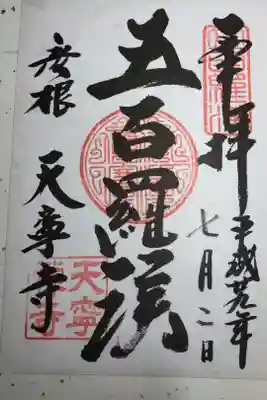 奉拝 平成廿九年
七月二日
五百羅漢
彦根 天寧寺
天寧